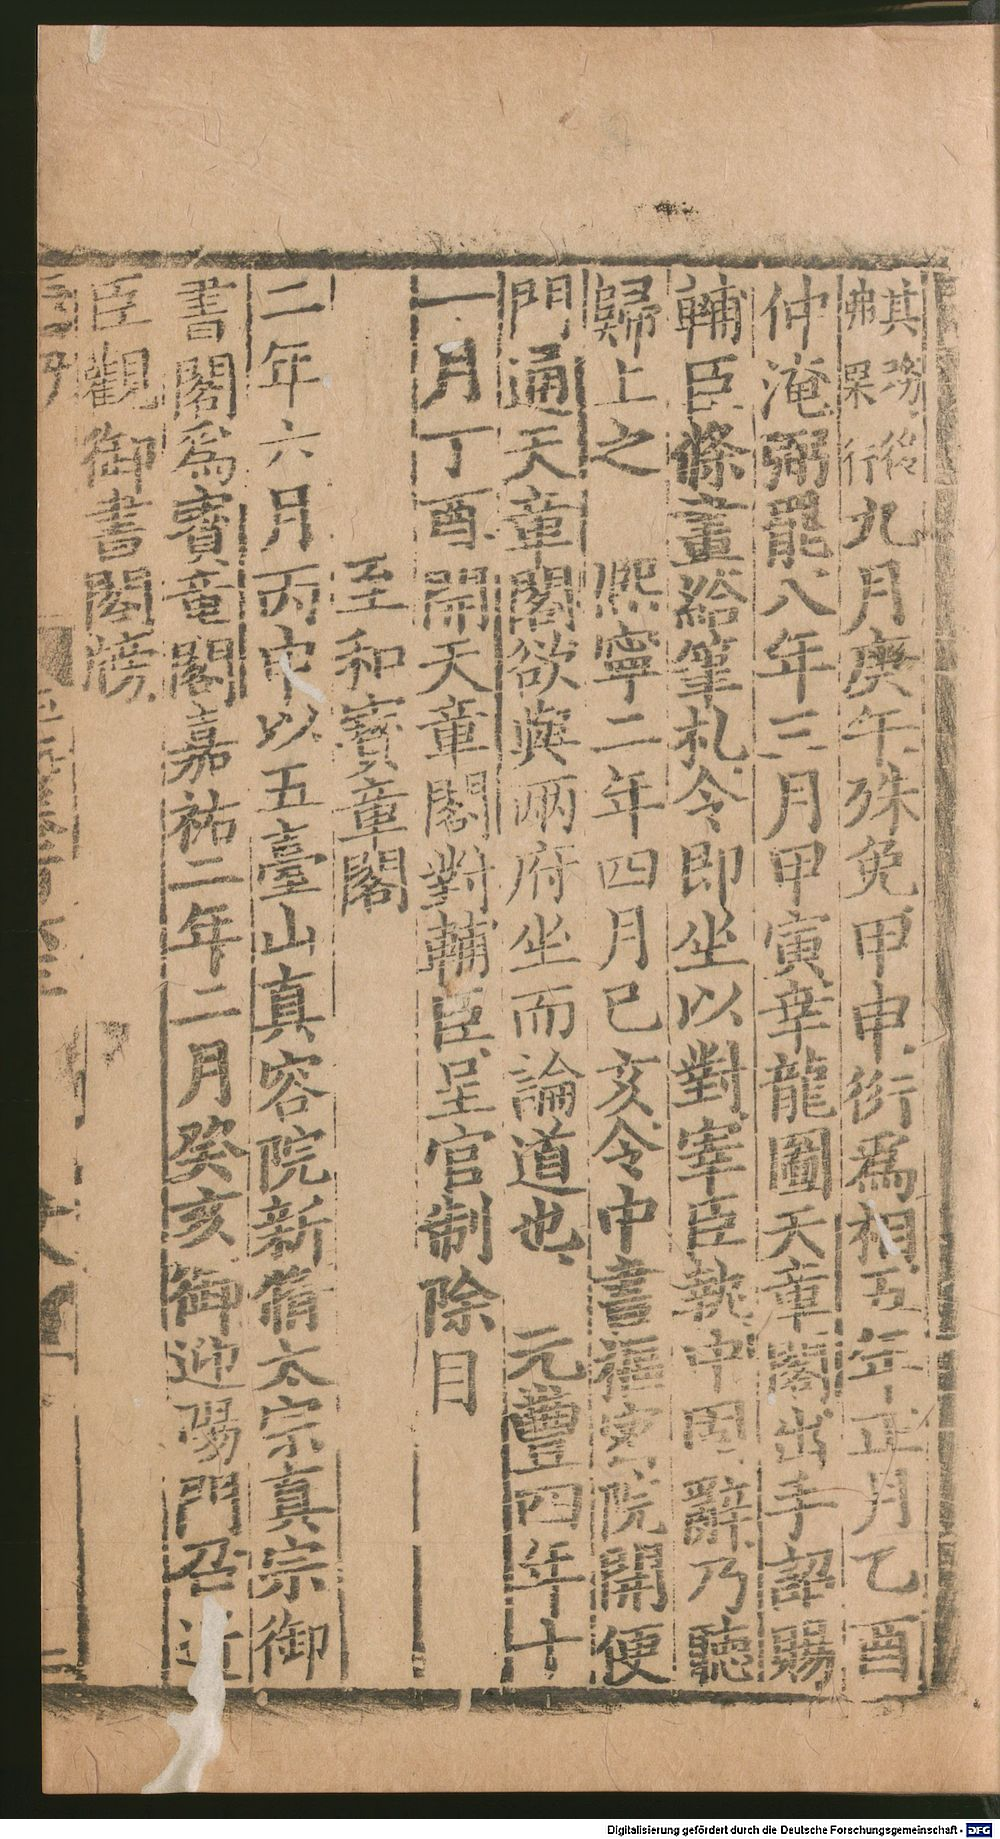 其務後
弗果行九月庚午殊免甲申衍爲相五年正月乙酉
仲淹弼罷八年三月甲寅幸龍圖天章閣出手詔賜
輔臣條畫給筆札令即坐以對宰臣執中固辭乃聽
歸上之 熙寧二年四月己亥令中書樞密院開便
門通天章閣欲與兩府坐而論道也 元豐四年十
一月丁酉開天章閣對輔臣呈官制除目
至和寶章閣
二年六月丙申以五臺山真容院新脩太宗真宗御
書閣爲寶章閣嘉祐二年二月癸亥御迎陽門召近
臣觀御書閣牓
Digitalisierung gefördert durch die Deutsche Forschungsgemeinschaft - DFG